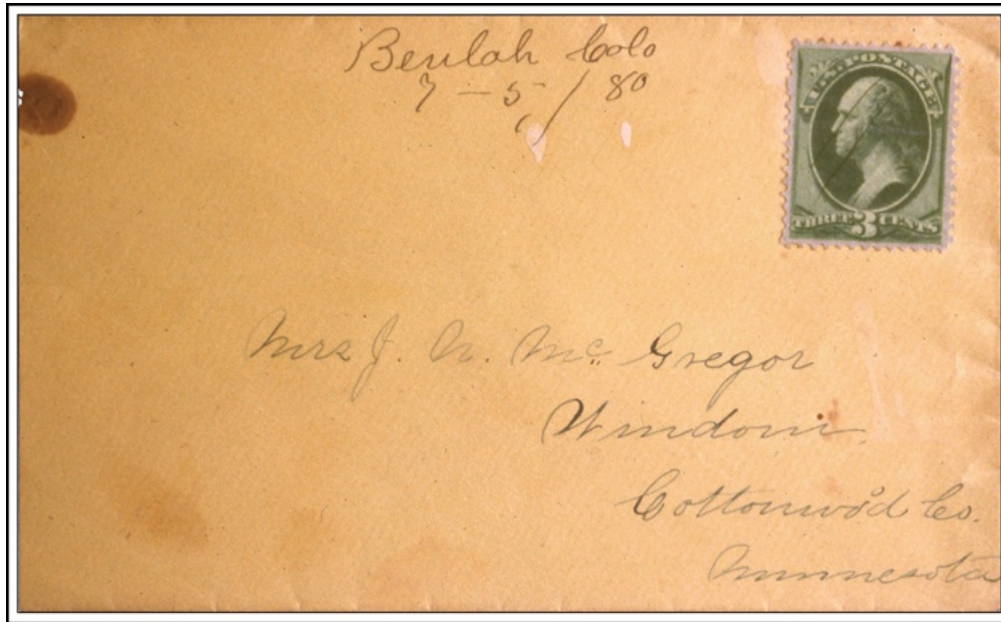 Beulah Colo
7 - 5 / 80
U.S. POSTAGE
THREE 3 CENTS
Mrs J. N. Mc Gregor
Windom
Cottonwood Co.
Minnesota